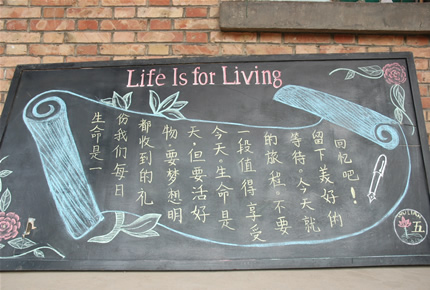 Life Is for Living
生命是一
份我们每日
都收到的礼
物。要梦想明
天，但要活好
今天。生命是
一段值得享受
的旅程。不要
等待。今天就
留下美好的
回忆吧！
五